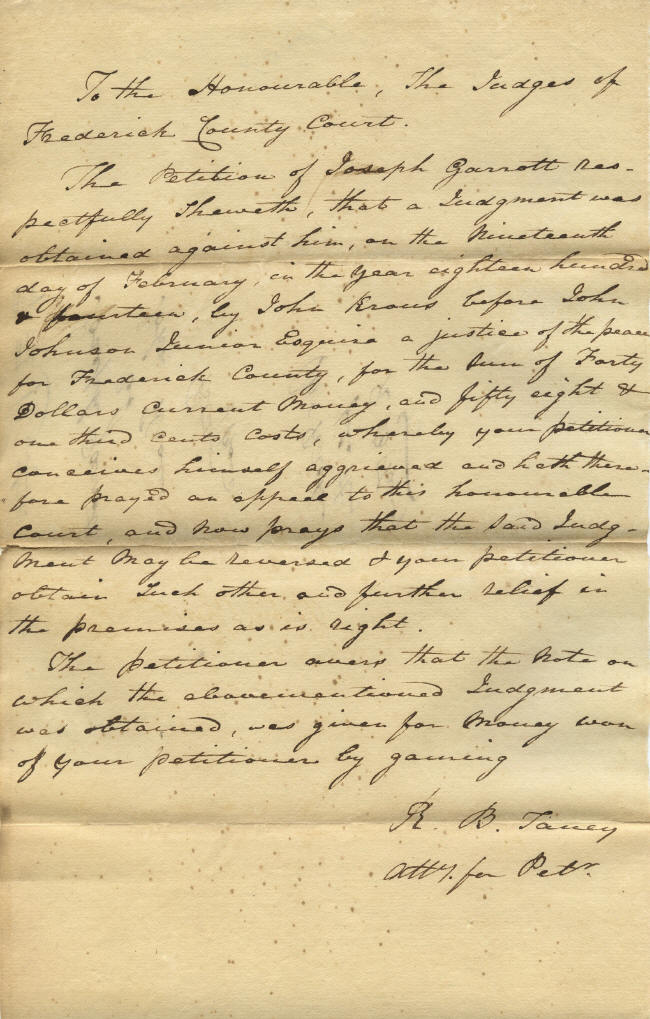 To the Honourable, The Judges of
Frederick County Court.
The Petition of Joseph Garrott res-
pectfully Sheweth, that a Judgment was
obtained against him, on the Nineteenth
day of February, in the year eighteen hundred
& fourteen, by John Kraus before John
Johnson Junior Esquire a justice of the peace
for Frederick County, for the Sum of Forty
Dollars Current Money, and fifty eight &
one third cents Costs, whereby your petitioner
conceives himself aggrieved and hath there-
fore prayed an appeal to this honourable
Court, and now prays that the said Judg-
ment May be reversed & your petitioner
obtain Such other and further relief in
the premises as is right.
The petitioner avers that the Note on
which the abovementioned Judgment
was obtained, was given for Money won
of your petitioner by gaming
R. B. Taney
Atty. for Petr.